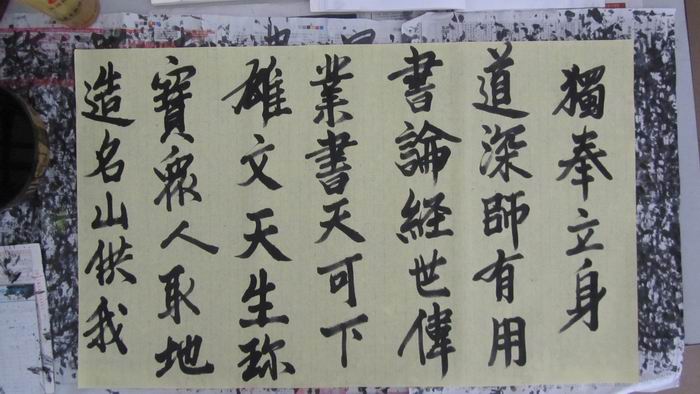 獨奉立身
道深師有用
書論経世偉
業書天可下
雄文天生珎
寶衆人取地
造名山供我